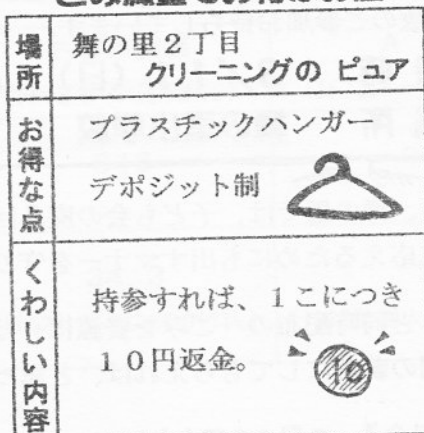 場所
舞の里２丁目
クリーニングの ピュア
お得な点
プラスチックハンガー
デポジット制
くわしい内容
持参すれば、１こにつき
１０円返金。
10